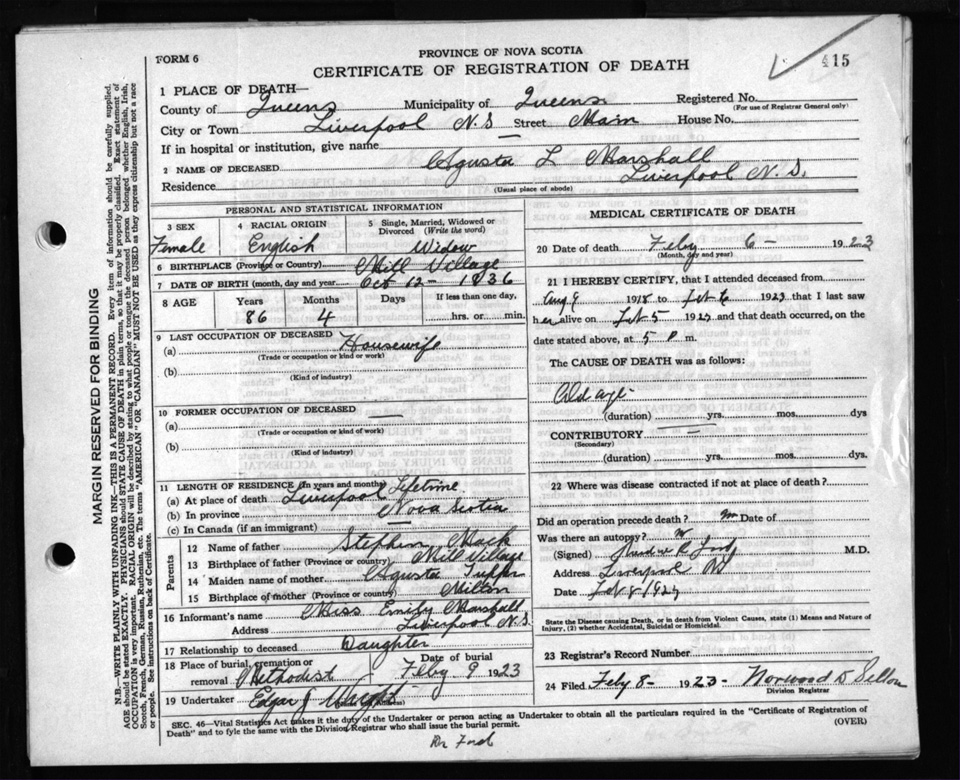 FORM 6
PROVINCE OF NOVA SCOTIA
CERTIFICATE OF REGISTRATION OF DEATH
415
1 PLACE OF DEATH—
County of Queens Municipality of Queens Registered No.
(For use of Registrar General only)
City or Town Liverpool N.S Street Main House No.
If in hospital or institution, give name
2 NAME OF DECEASED Agusta L Marshall
Residence Liverpool N.S.
(Usual place of abode)
PERSONAL AND STATISTICAL INFORMATION
3 SEX 4 RACIAL ORIGIN 5 Single, Married, Widowed or Divorced (Write the word)
Female English Widow
6 BIRTHPLACE (Province or Country) Mill Village
7 DATE OF BIRTH (month, day and year) Oct 12 - 1836
8 AGE Years Months Days If less than one day,
86 4 hrs. or min.
9 LAST OCCUPATION OF DECEASED
(a) Housewife
(Trade or occupation or kind or work)
(b)
(Kind of industry)
10 FORMER OCCUPATION OF DECEASED
(a)
(Trade or occupation or kind of work)
(b)
(Kind of industry)
11 LENGTH OF RESIDENCE (In years and months)
(a) At place of death Liverpool Lifetime
(b) In province Nova Scotia
(c) In Canada (if an immigrant)
Parents
12 Name of father Stephen Mack
13 Birthplace of father (Province or country) Mill Village
14 Maiden name of mother Agusta Tupper
15 Birthplace of mother (Province or country) Milton
16 Informant's name Miss Emily Marshall
Address Liverpool N.S.
17 Relationship to deceased Daughter
18 Place of burial, cremation or removal Methodist Date of burial Feby 9 1923
19 Undertaker Edgar J Wright (Address)
MEDICAL CERTIFICATE OF DEATH
20 Date of death Feby 6 - 1923
(Month, day and year)
21 I HEREBY CERTIFY, that I attended deceased from
Aug 9 1918 to Feb 6 1923 that I last saw
her alive on Feb 5 1923 and that death occurred, on the
date stated above, at 5 P m.
The CAUSE OF DEATH was as follows:
Old age
(duration) yrs. mos. dys
CONTRIBUTORY
(Secondary)
(duration) yrs. mos. dys.
22 Where was disease contracted if not at place of death?
Did an operation precede death? no Date of
Was there an autopsy? no
(Signed) M.D.
Address Liverpool NS
Date Feb 8 1923
State the Disease causing Death, or in death from Violent Causes, state (1) Means and Nature of Injury, (2) whether Accidental, Suicidal or Homicidal.
23 Registrar's Record Number
24 Filed Feby 8 - 1923 - Norwood D Sellon
Division Registrar
SEC. 46—Vital Statistics Act makes it the duty of the Undertaker or person acting as Undertaker to obtain all the particulars required in the "Certificate of Registration of
Death" and to fyle the same with the Division Registrar who shall issue the burial permit. (OVER)
Dr Ford
MARGIN RESERVED FOR BINDING
N.B.—WRITE PLAINLY WITH UNFADING INK—THIS IS A PERMANENT RECORD. Every item of information should be carefully supplied.
AGE should be stated EXACTLY. PHYSICIANS should STATE CAUSE OF DEATH in plain terms, so that it may be properly classified. Exact statement of
OCCUPATION is very important. RACIAL ORIGIN will be described by stating to what people or tongue the deceased person belonged whether English, Irish,
Scotch, French, German, Russian, Ruthenian, etc. The terms "AMERICAN" OR "CANADIAN" MUST NOT BE USED as they express citizenship but not a race
or people. See instructions on back of Certificate.